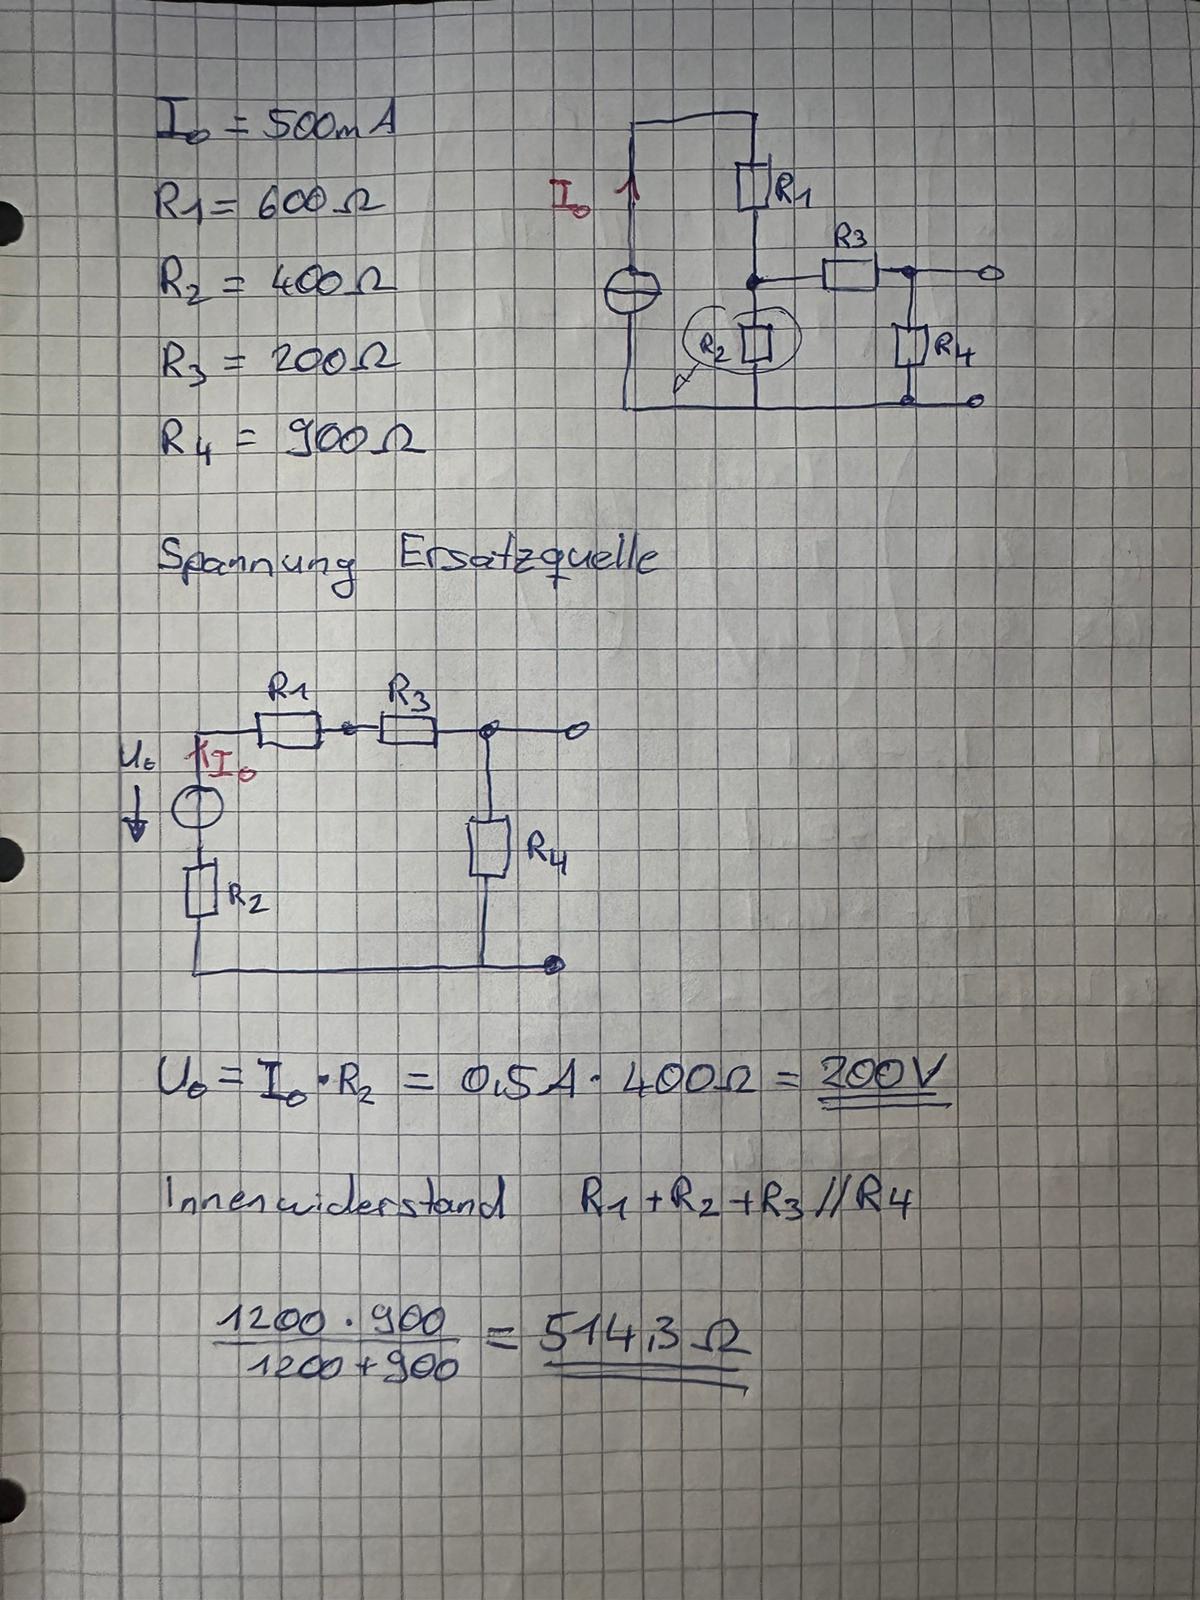 I₀ = 500mA
R1 = 600Ω
R2 = 400Ω
R3 = 200Ω
R4 = 900Ω
I₀
R1
R3
R2
R4
Spannung Ersatzquelle
R1 R3
U₀
I₀
R4
R2
U₀ = I₀ · R2 = 0,5A · 400Ω = 200V
Innenwiderstand R1 + R2 + R3 // R4
1200 · 900
1200 + 900
= 514,3 Ω